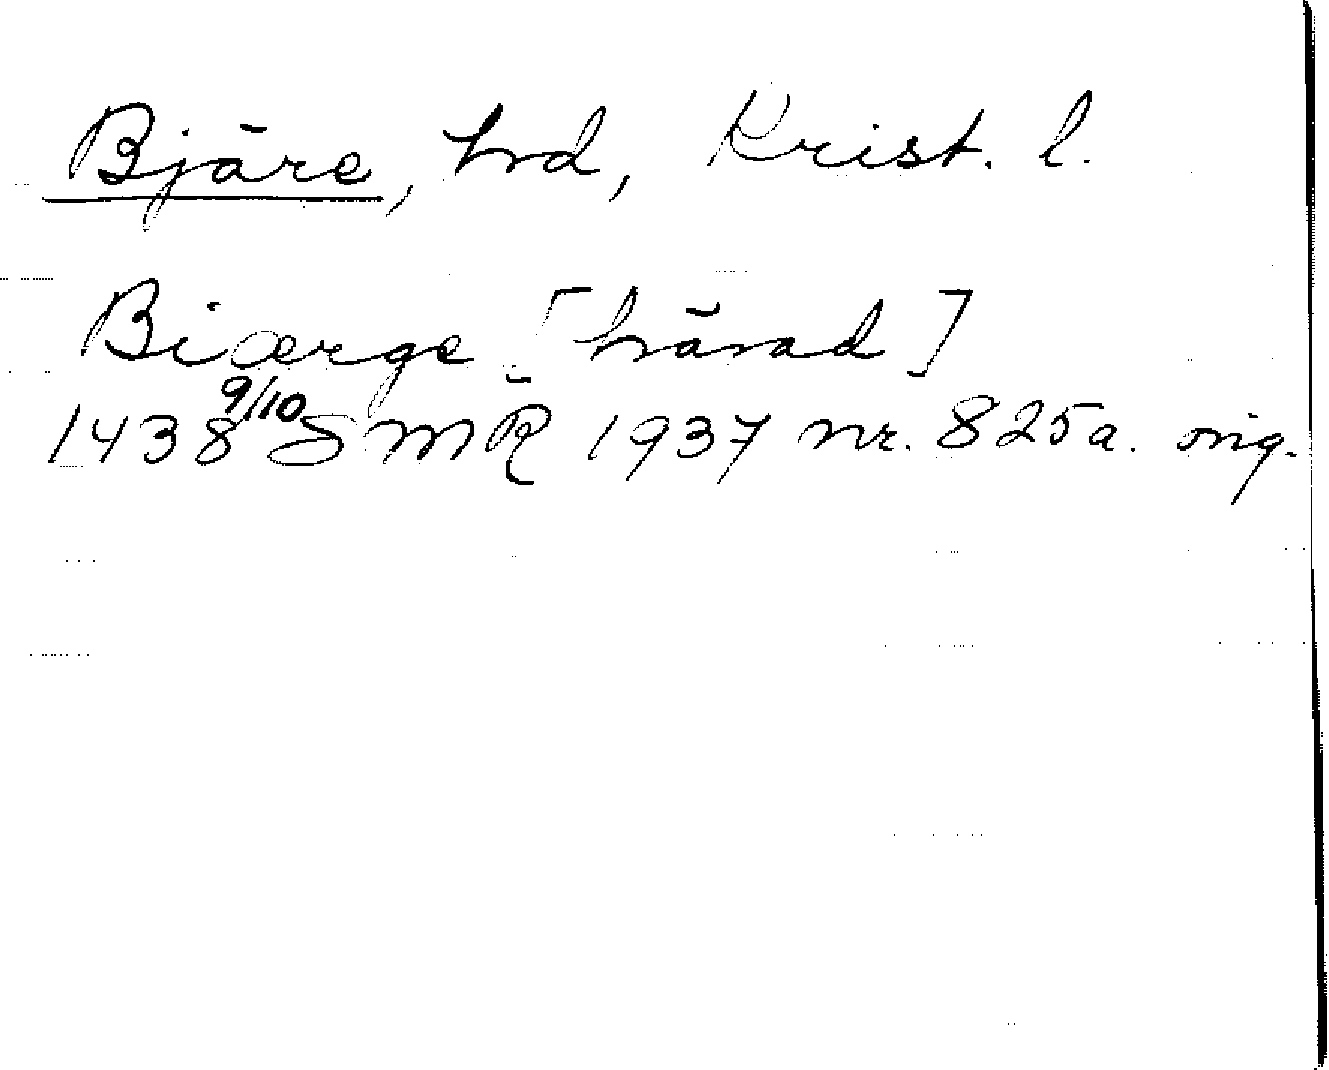 Bjäre, hrd, Krist. l.
Biærge [härad]
1438 9/10 SMR 1937 nr. 825a. orig.